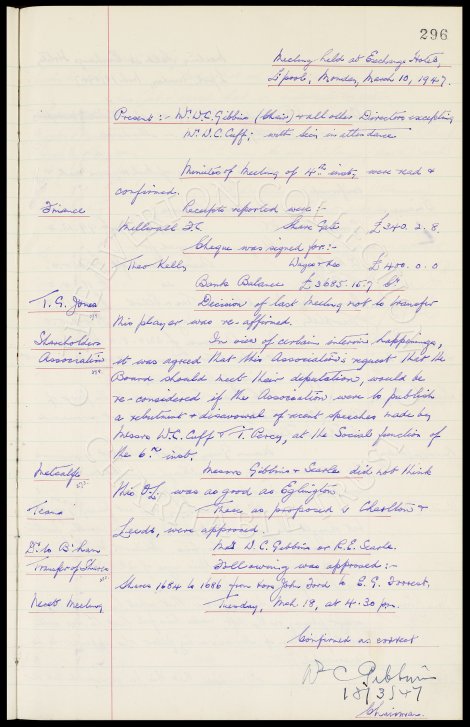 296
Meeting held at Exchange Hotel,
L'pool, Monday, March 10, 1947.
Present :- Mr W.C. Gibbins (Chair) & all other Directors excepting
Mr W.C. Cuff; with Secy in attendance
Minutes of Meeting of 4th inst; were read &
confirmed.
Finance
Receipts reported were :-
Millwall F.C. Share Gate £340. 2. 8.
Cheque was signed for :-
Theo Kelly Wages &c £400. 0. 0
Bank Balance £3685. 15. 7 Dr
T. G. Jones
Decision of last Meeting not to transfer
this player was re-affirmed.
Shareholders
Association
In view of certain interim happenings,
it was agreed that this Association's request that the
Board should meet their deputation, would be
re-considered if the Association were to publish
a rebutment & disavowal of recent speeches made by
Messrs W.C. Cuff & T. Percy, at the Social function of
the 6th inst.
Metcalfe
Messrs Gibbins & Searle did not think
this O.L. was as good as Eglington
Teams
These as proposed v Charlton &
Leeds, were approved.
Dr. to B'ham
Mr W.C. Gibbins or R.E. Searle.
Transfer of Shares
Following was approved :-
Shares 1684 to 1686 from John Ford to E. G. Forrest.
Next Meeting
Tuesday, Mch 18, at 4.30 pm.
Confirmed as correct
W C Gibbins
18/3/47
Chairman.